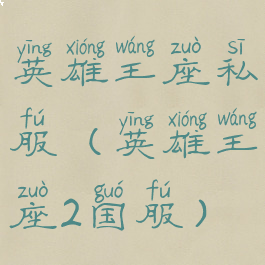 yīng xióng wáng zuò sī
英雄王座私
fú yīng xióng wáng
服(英雄王
zuò guó fú
座2国服)